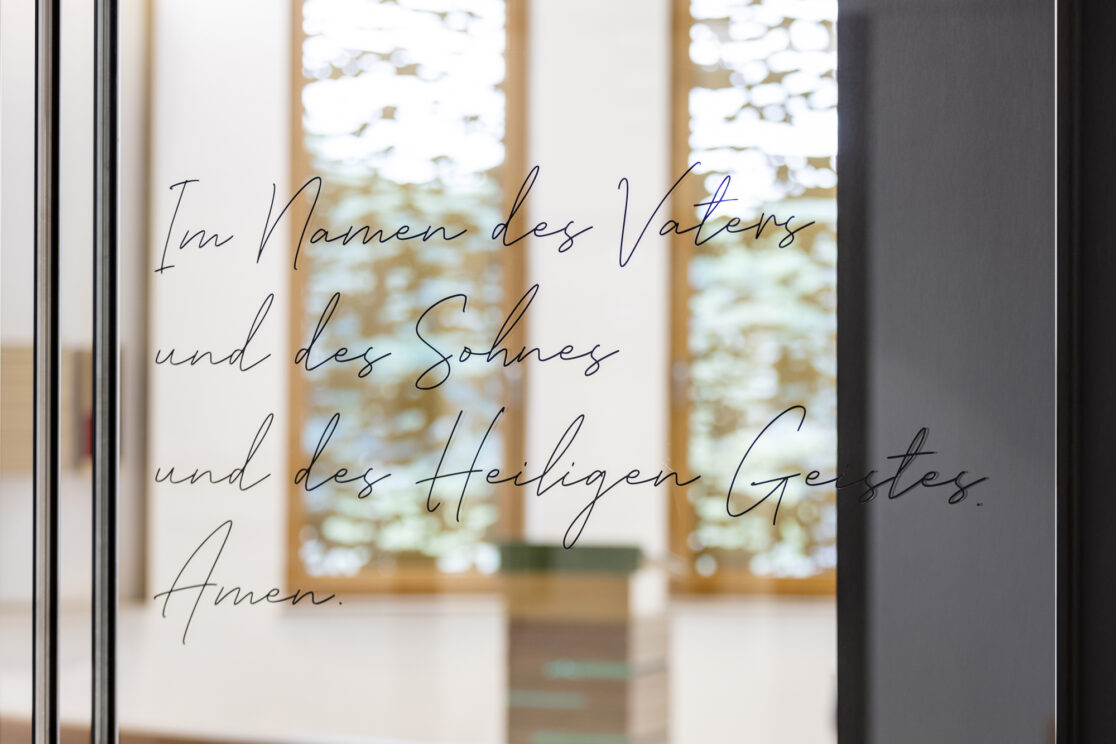 Im Namen des Vaters
und des Sohnes
und des Heiligen Geistes.
Amen.